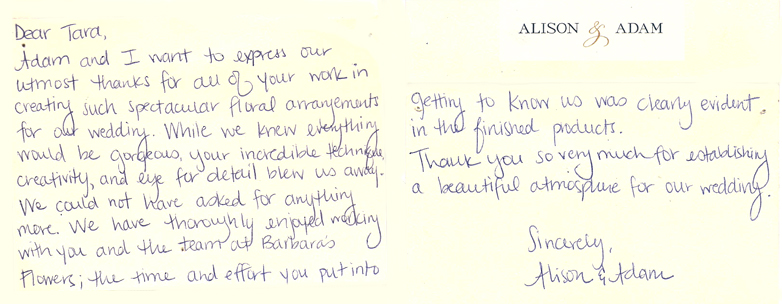 Dear Tara,
Adam and I want to express our
utmost thanks for all of your work in
creating such spectacular floral arrangements
for our wedding. While we knew everything
would be gorgeous, your incredible technique,
creativity, and eye for detail blew us away.
We could not have asked for anything
more. We have thoroughly enjoyed working
with you and the team at Barbara's
Flowers; the time and effort you put into
ALISON & ADAM
getting to know us was clearly evident
in the finished products.
Thank you so very much for establishing
a beautiful atmospure for our wedding.
Sincerely,
Alison & Adam